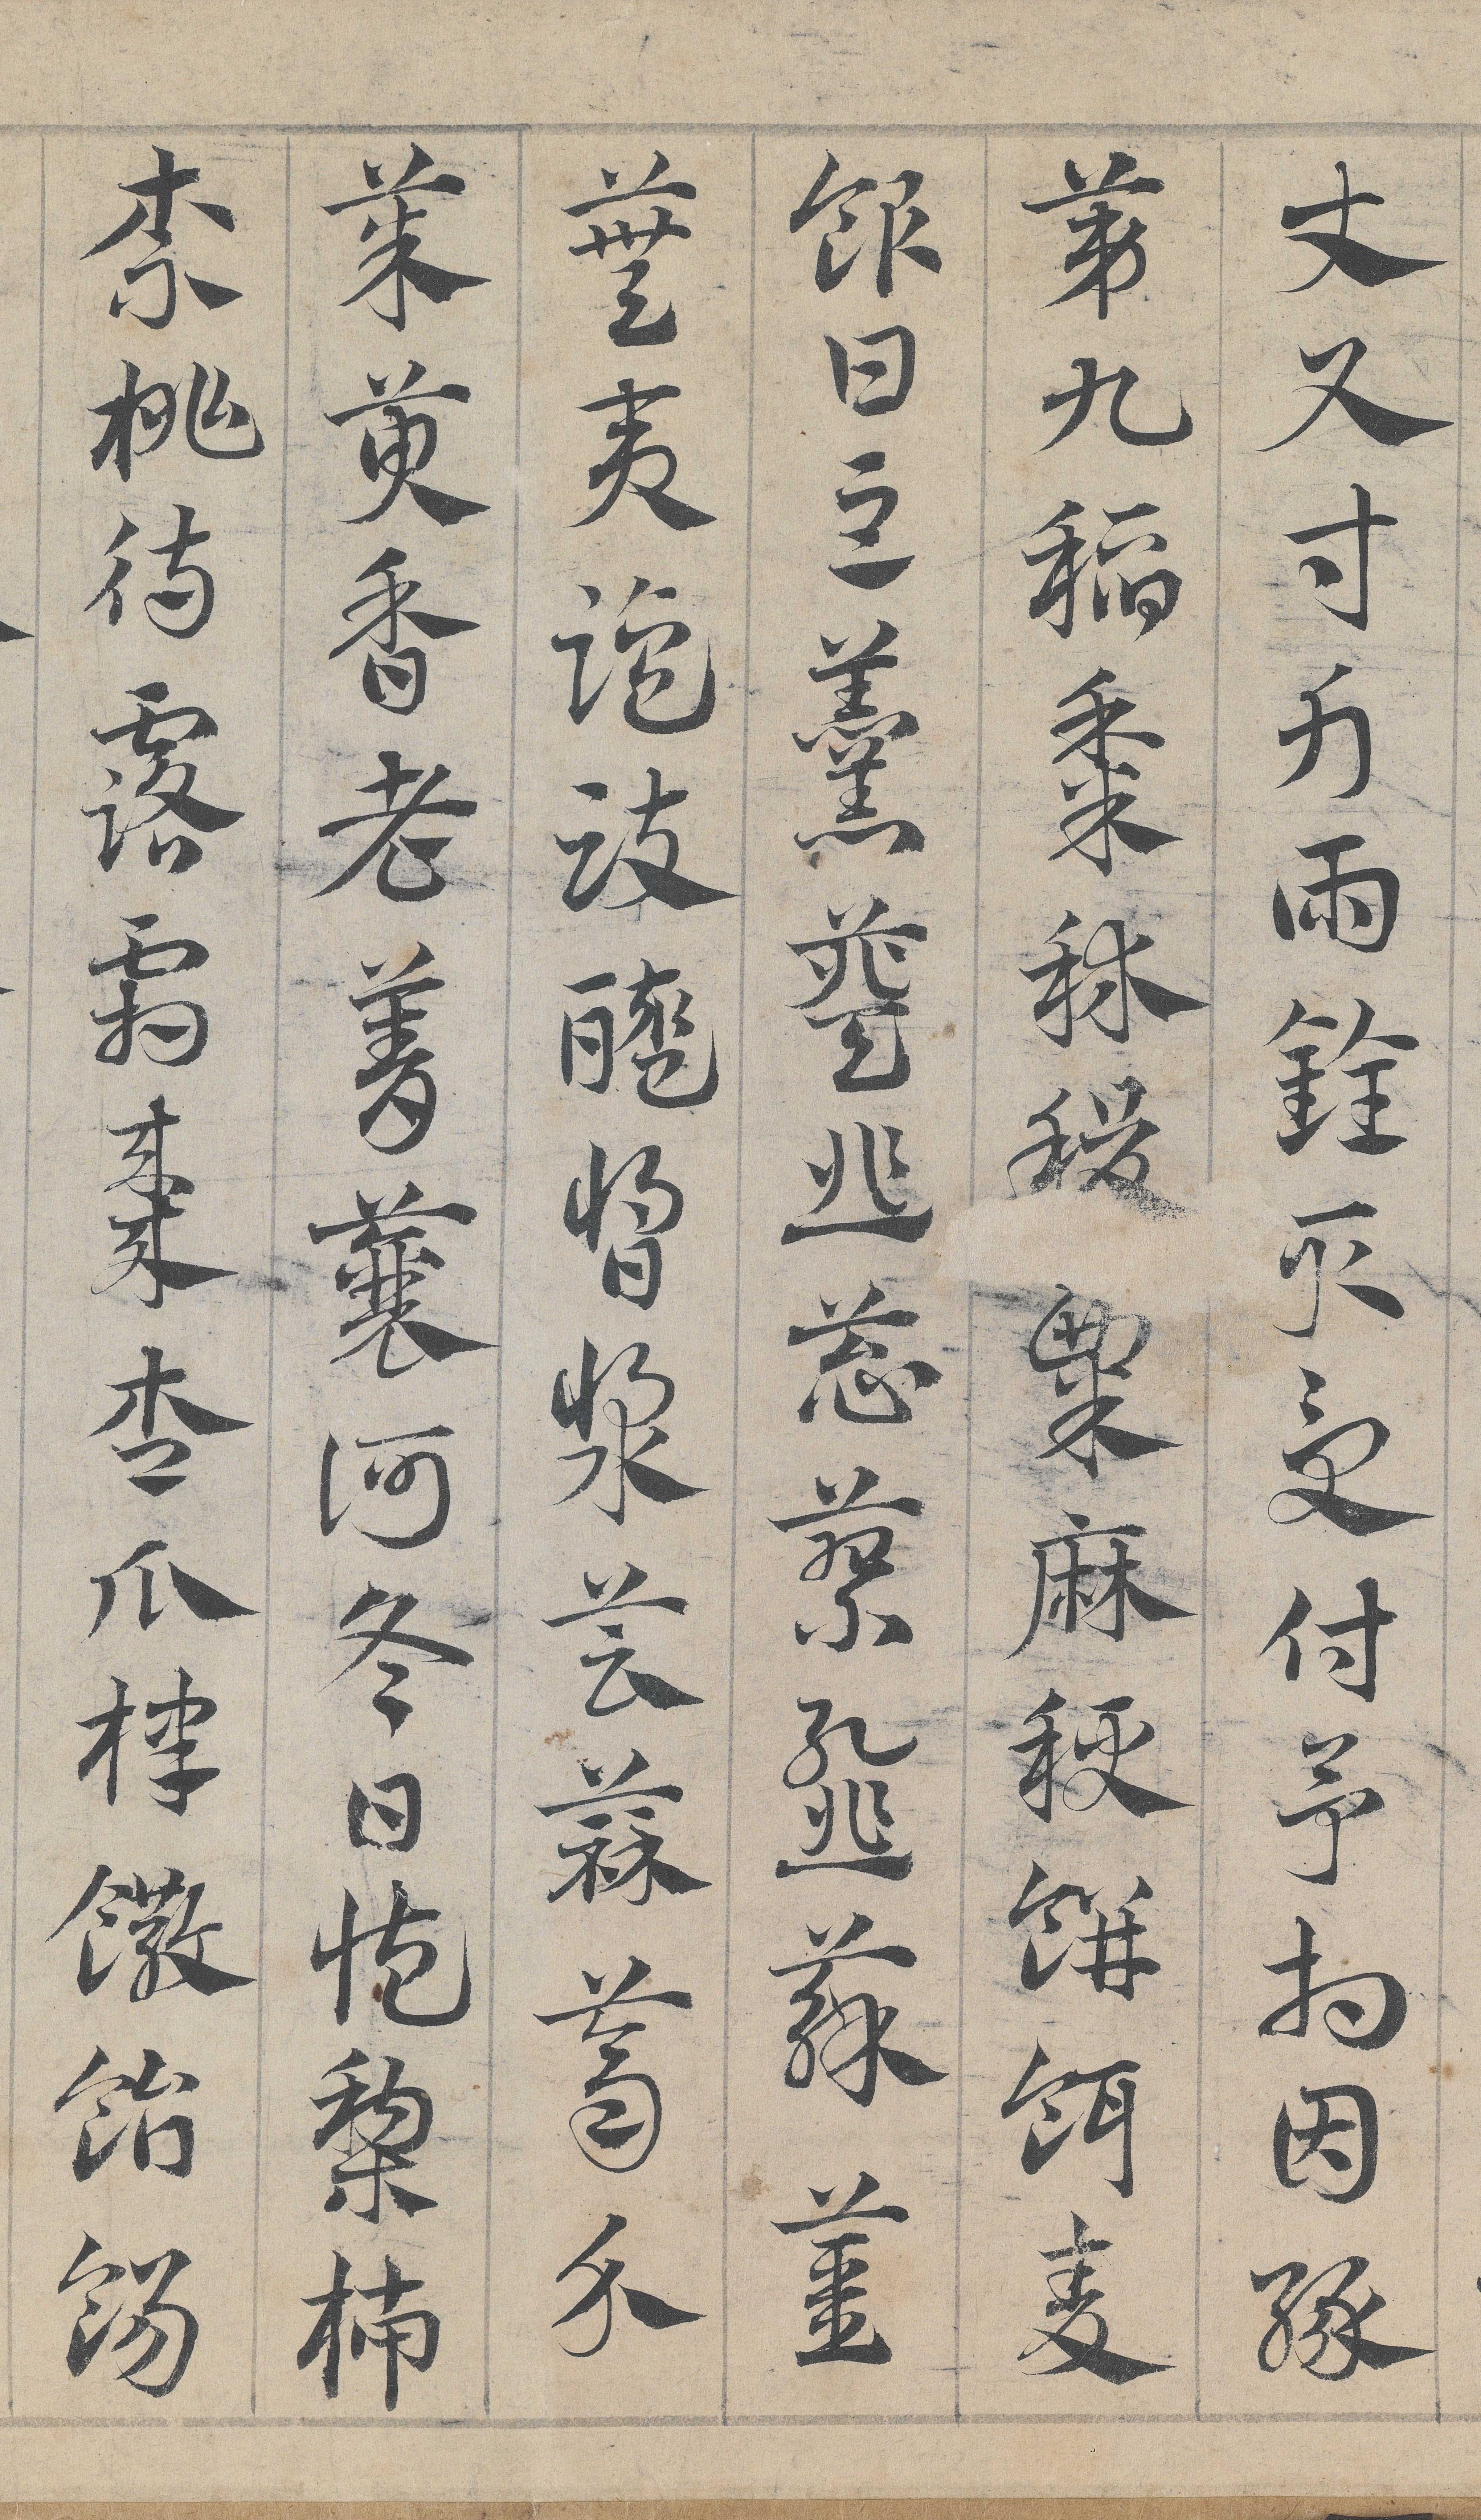 丈尺寸斤兩銓取受付予相因緣
第九稻黍秫稷粟麻秔餅餌麥
飯甘豆羹葵韭蔥蓼䪥蘇薑
蕪夷鹽豉醯醬漿芸蒜薺介
茱萸香老菁蘘河冬日臧梨柿
柰桃待露霜棗杏瓜棣饊飴餳